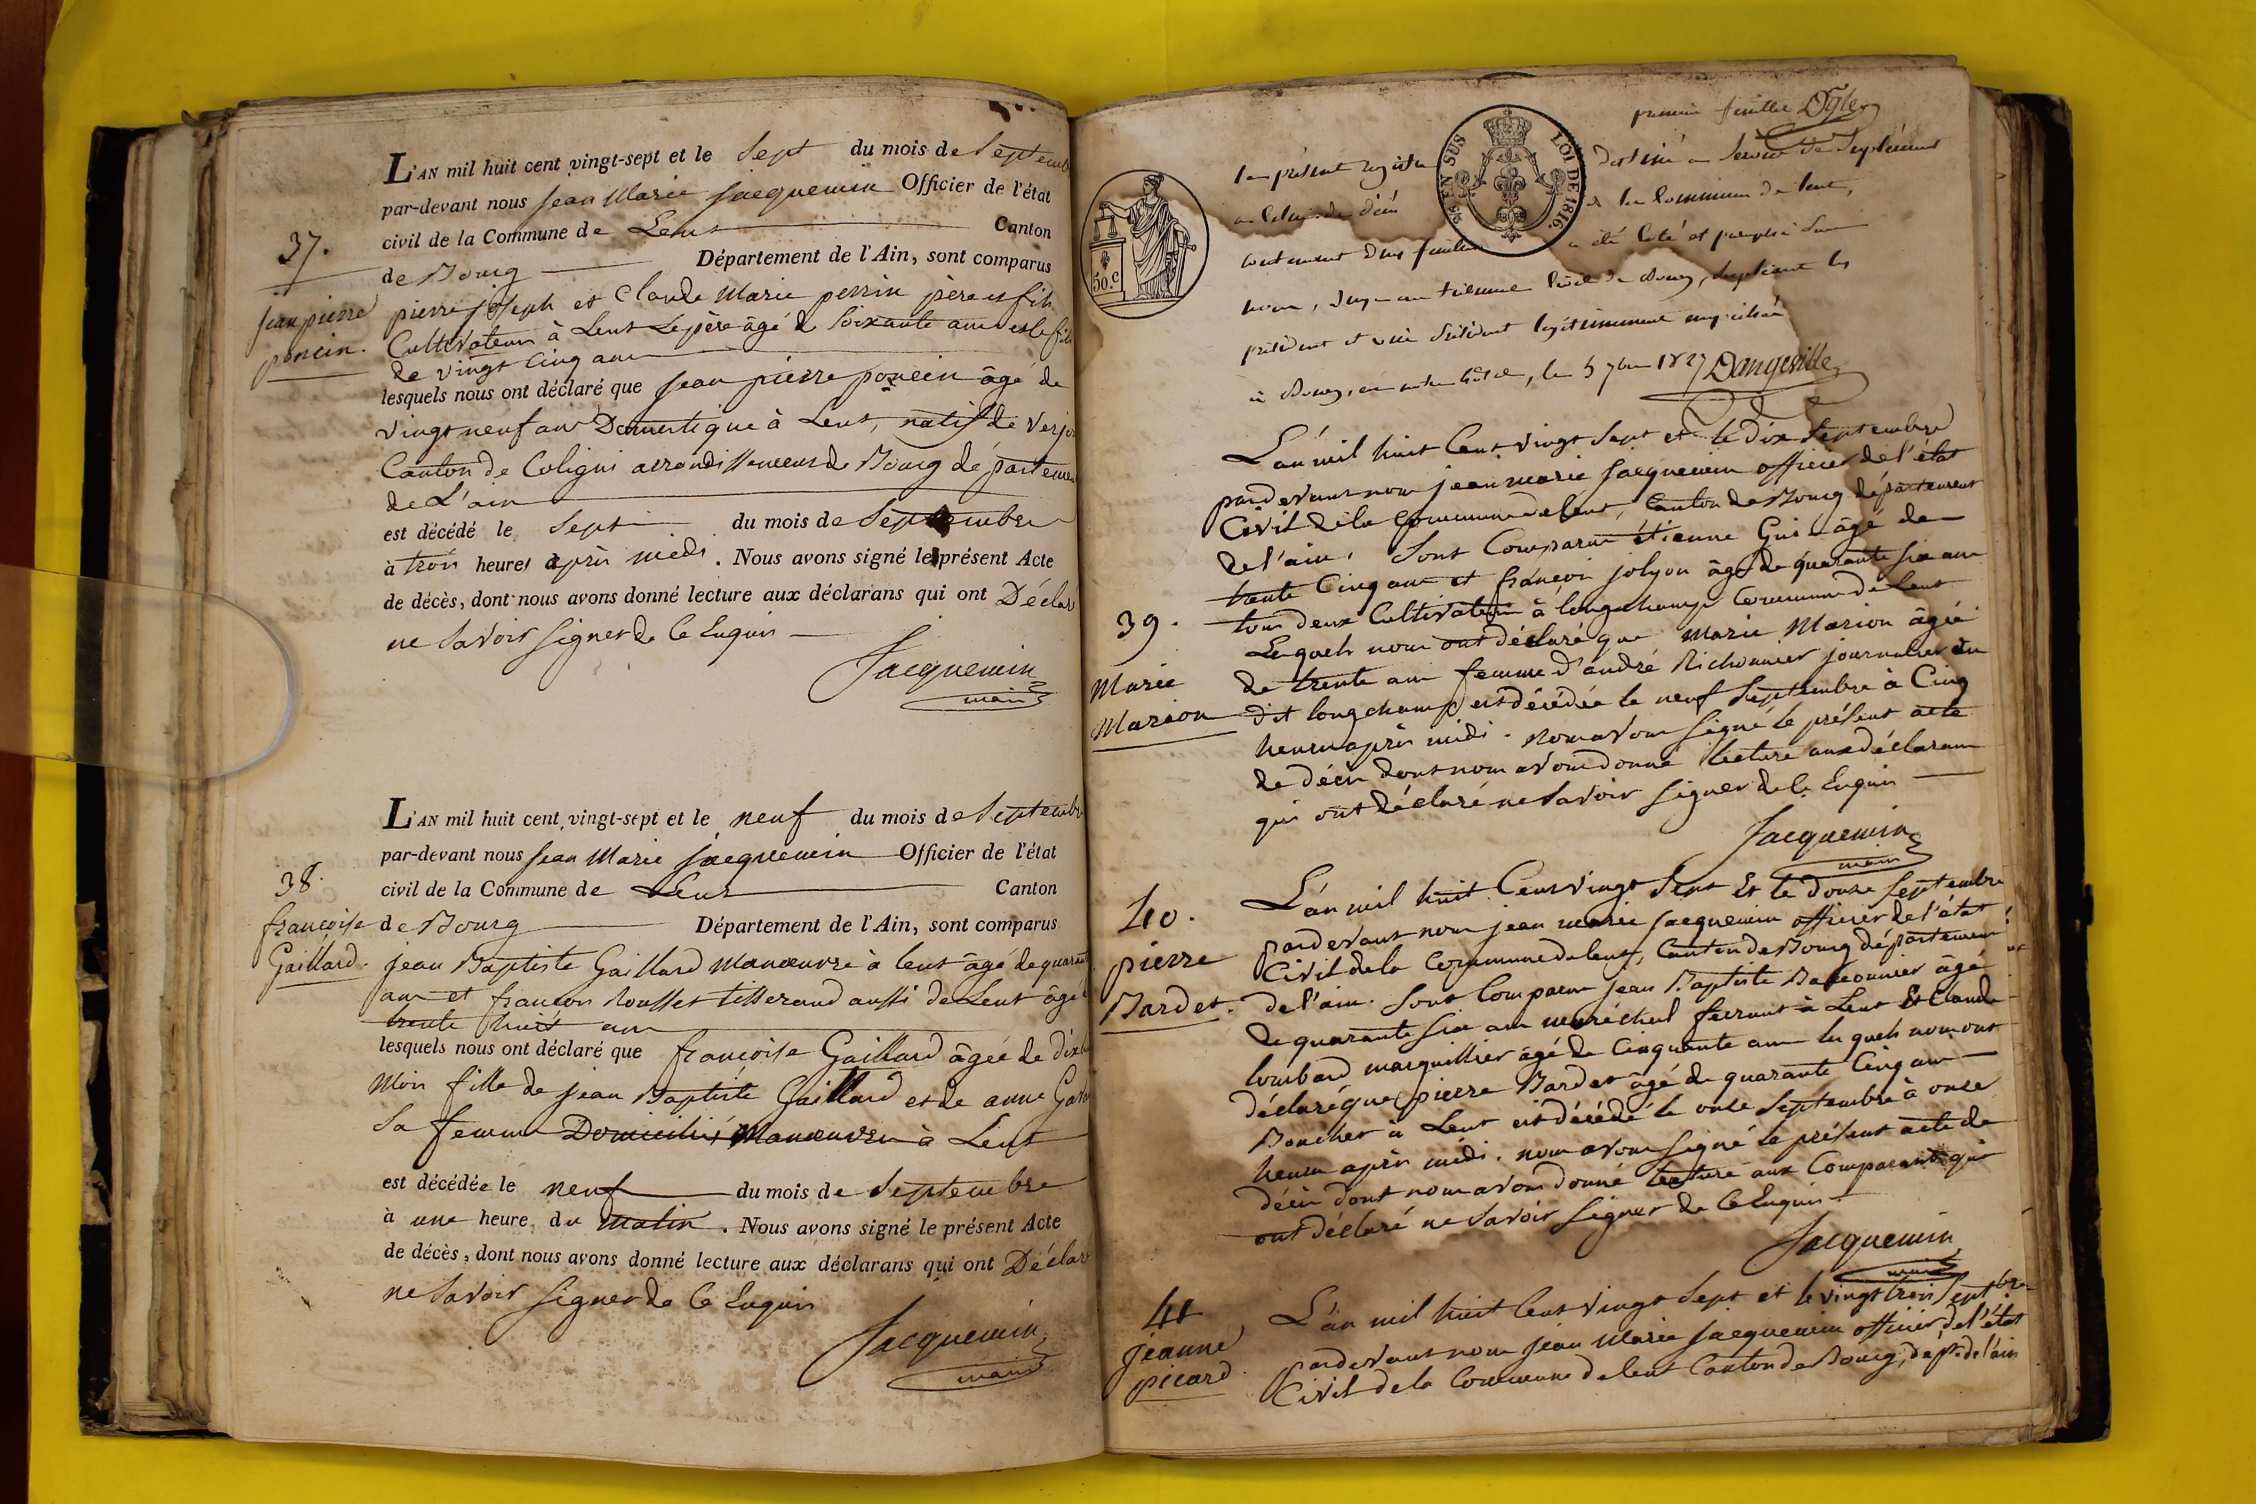 37.
jean pierre
poncin.
L'AN mil huit cent vingt-sept et le sept du mois de Septemb
par-devant nous jean Marie jacquemin Officier de l'état
civil de la Commune de Lent Canton
de Bourg Département de l'Ain, sont comparus
pierre joseph et Claude Marie perrin père et fils
Cultivateurs à Lent Le père âgé de soixante ans et le fils
de vingt cinq ans
lesquels nous ont déclaré que jean pierre poncin âgé de
vingt neuf ans Domestique à Lent, natif de Verjo
Canton de Coligni arrondissement de Bourg départemen
de L'ain
est décédé le sept du mois de Septembre
à trois heures après midi. Nous avons signé le présent Acte
de décès, dont nous avons donné lecture aux déclarans qui ont Déclar
ne Savoir signer de ce Enquis
Jacquemin
maire
38.
françoise
Gaillard.
L'AN mil huit cent vingt-sept et le neuf du mois de Septembr
par-devant nous jean Marie jacquemin Officier de l'état
civil de la Commune de Lent Canton
de Bourg Département de l'Ain, sont comparus
jean Baptiste Gaillard Manœuvre à lent âgé de quarant
ans et françois Rousset tisserand aussi de Lent âgé
trente huit ans
lesquels nous ont déclaré que françoise Gaillard âgée de dix
Mois fille de jean Baptiste Gaillard et de anne
Sa femme Domiciliés Manœuvre à Lent
est décédée le neuf du mois de Septembre
à une heure du matin. Nous avons signé le présent Acte
de décès, dont nous avons donné lecture aux déclarans qui ont Déclar
ne Savoir signer de ce Enquis
Jacquemin
maire
premier feuillet
EN SUS
LOI DE 1816.
50.c
le présent registre destiné à servir de Supplément
à celui de décès de la commune de lent,
contenant deux feuillets a été coté et paraphé par
nous, juge au tribunal civil de Bourg, suppléant les
président et vice président légitimement empêchés
à Bourg, en notre hôtel, le 5 7bre 1827 Dangeville
39.
Marie
Marion
L'an mil huit Cent vingt Sept et le dix Septembre
pardevant nous jean marie jacquemin officier de l'état
Civil de la Commune de lent, Canton de Bourg département
de l'ain, Sont Comparus étienne Gui âgé de
trente Cinq ans et françois jolyon âgé de quarante six ans
tous deux Cultivateurs à longchamp Commune de Lent
Lesquels nous ont déclaré que Marie Marion âgée
de trente ans femme d'andré Richonnier journalier au
dit longchamp est décédée le neuf Septembre à Cinq
heures après midi. nous avons signé le présent acte
de décès dont nous avons donné lecture aux déclarans
qui ont déclaré ne Savoir signer de ce Enquis
Jacquemin
maire
40.
pierre
Bardet.
L'an mil huit Cent vingt Sept Et le douze Septembre
pardevant nous jean marie jacquemin officier de l'état
Civil de la Commune de lent, Canton de Bourg département
de l'ain. Sont Comparus jean Baptiste âgé
de quarante six ans maréchal ferrant à Lent Et Claude
lombard marguillier âgé de Cinquante ans lesquels nous ont
déclaré que pierre Bardet âgé de quarante Cinq ans
Boucher à Lent est décédé le onze Septembre à onze
heures après midi. nous avons signé le présent acte de
décès dont nous avons donné lecture aux Comparants qui
ont déclaré ne Savoir signer de ce Enquis
Jacquemin
maire
41
jeanne
picard
L'an mil huit Cent vingt Sept et le vingt trois Septbre
pardevant nous jean Marie jacquemin officier de l'état
Civil de la Commune de lent Canton de Bourg, dépt. de l'ain